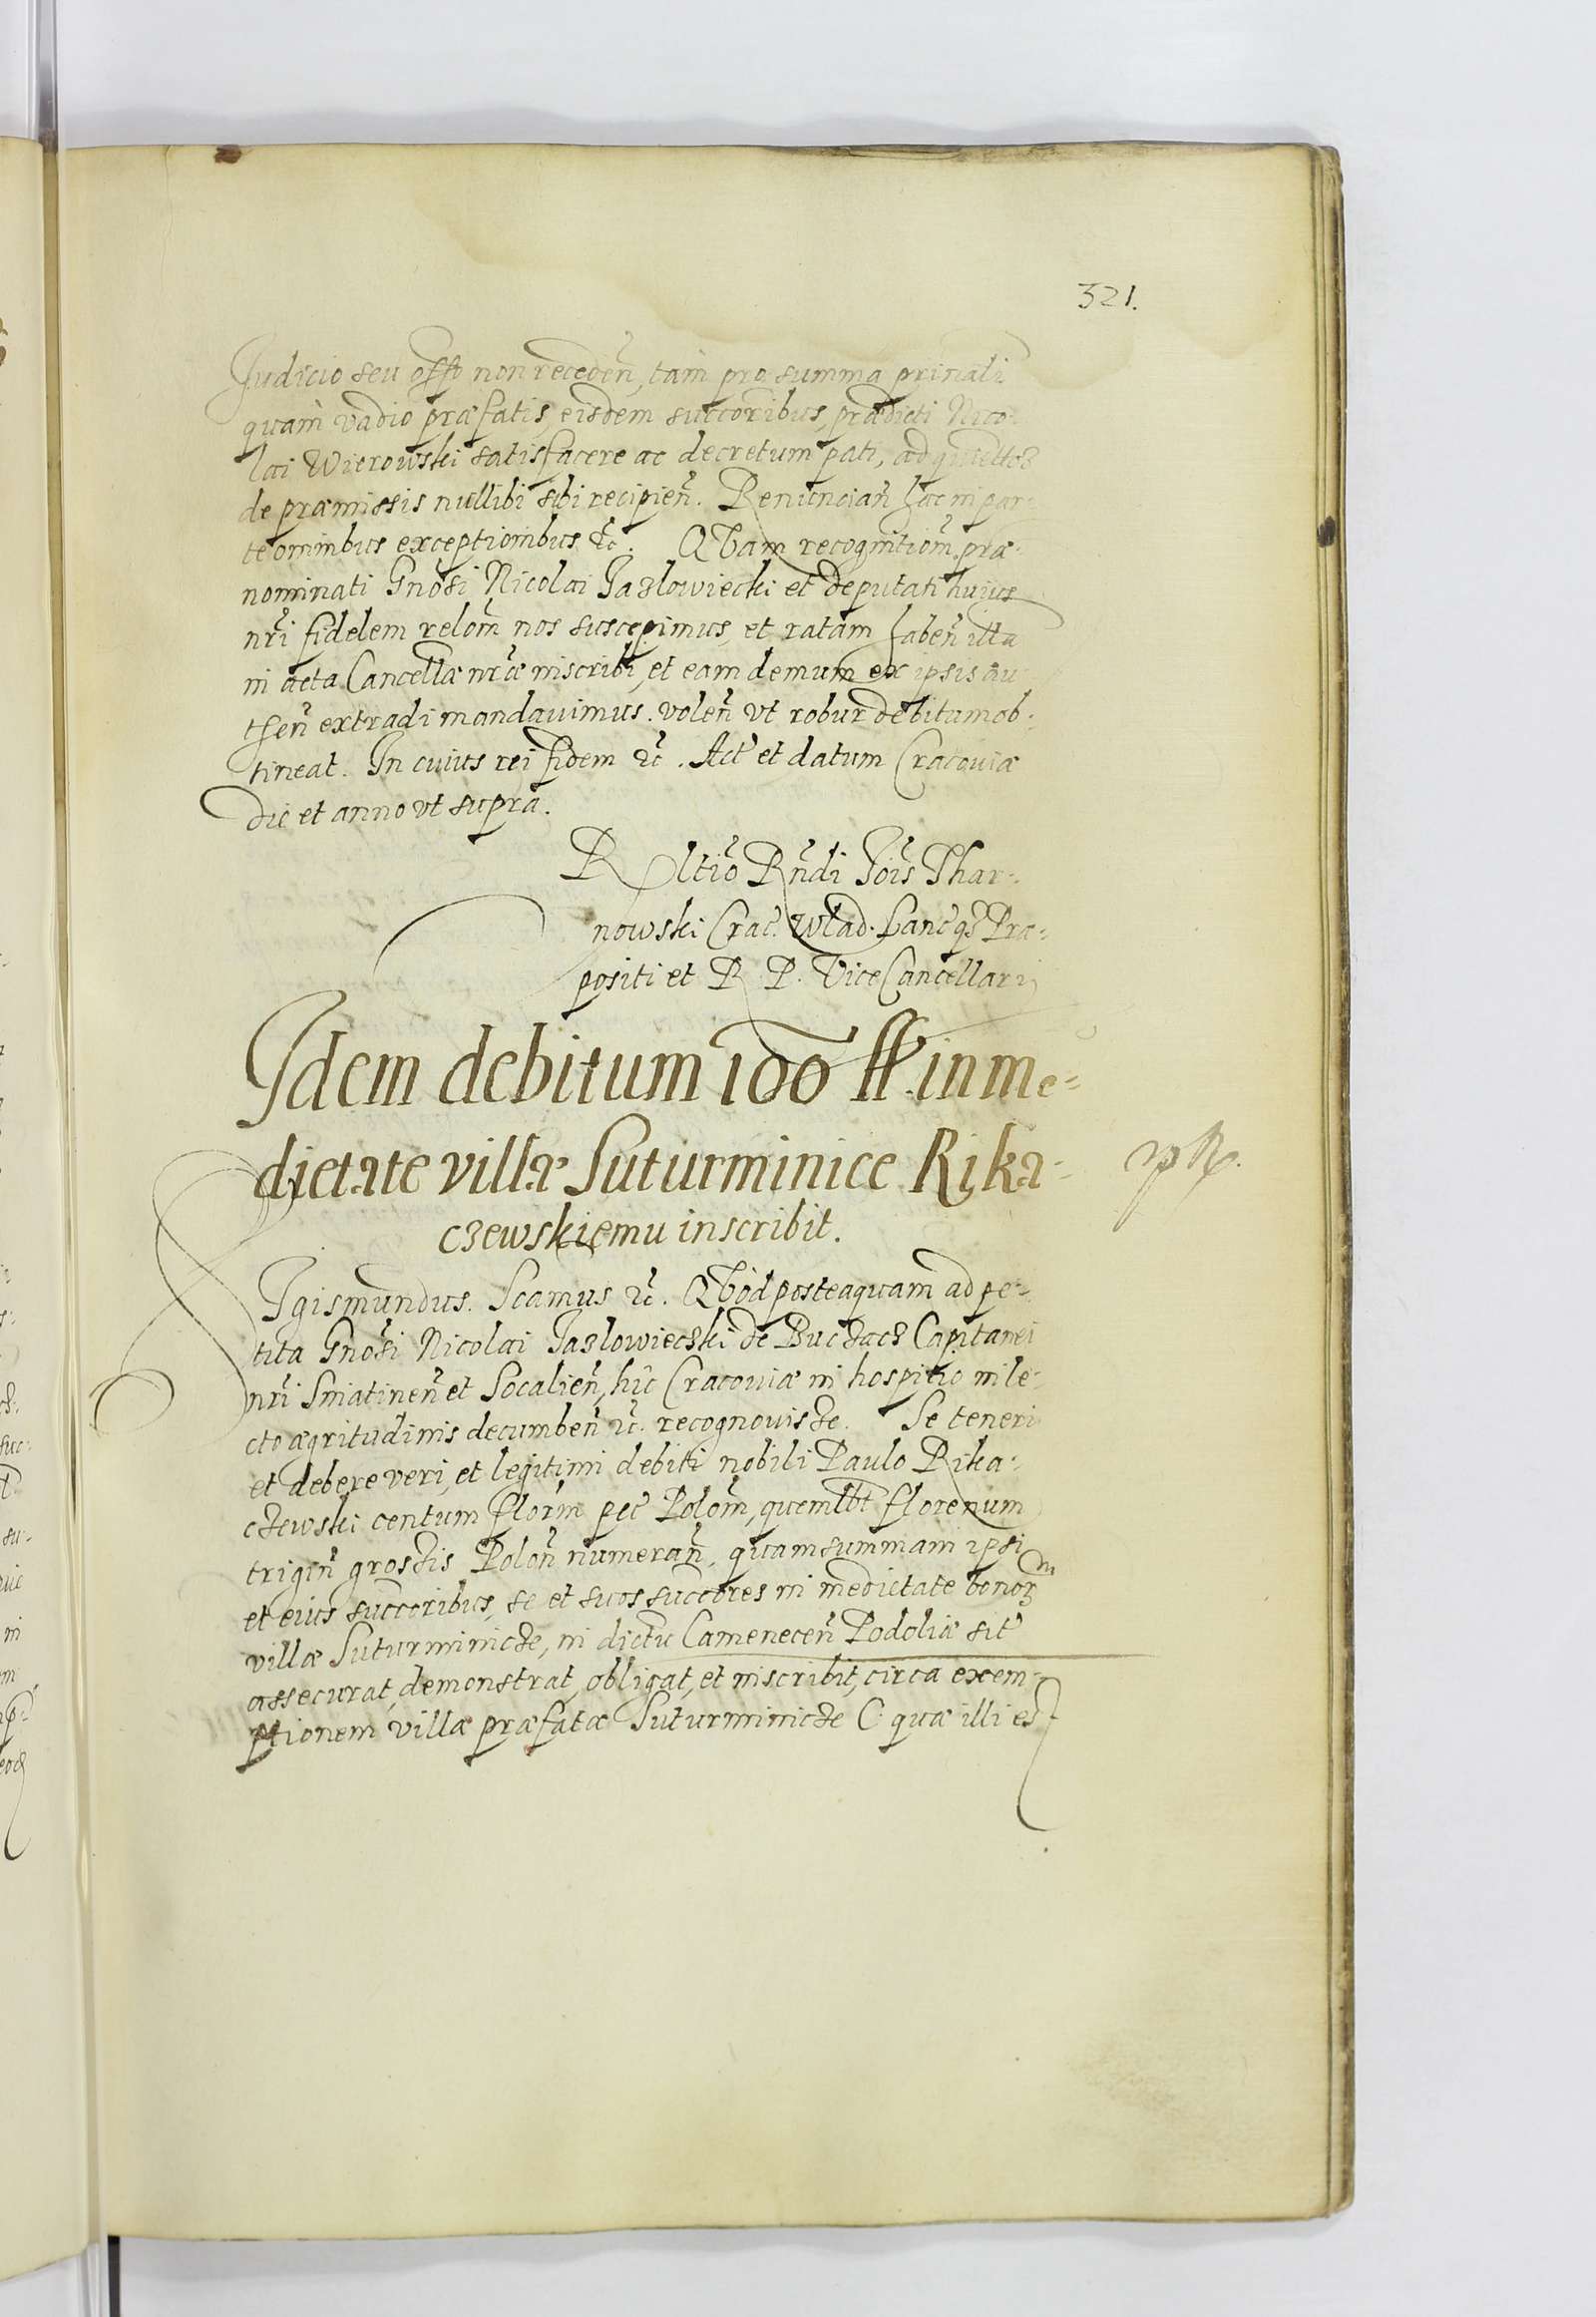 321.
Judicio seu offo non recedeñ, tam pro summa prinali
quam vadio præfatis, eisdem succoribus, prædicti Nico-
lai Wierowski satisfacere ac decretum pati, ad
de præmissis nullibi sibi recipieñ. Renuncian̄ hac in par-
te omnibus exceptionibus &c̃. QVam recognition̄ præ-
nominati Gnosi Nicolai Jazlowiecki et deputati huius
nr̃i fidelem relom̃ nos suscepimus, et ratam habeñ illa
in acta Cancellæ nr̃æ inscribi, et eam demum ex ipsis au
theñ extradi mandauimus. voleñ vt robur debitum ob-
tineat. In cuius rei fidem &c̃. Act' et datum Cracouiæ
die et anno vt supra.
R̃ltio Rñdi Jois̃ Thar-
nowski Crac̃. Wlad. Lanc̃ qȝ Præ-
positi et R P. ViceCancellarij
Idem debitum 100 ff. in me-
dietate villæ Suturminice Rika-
czewskiemu inscribit.
pR.
SIgismundus. Scamus &c̃. QVòd posteaquam ad pe-
tita Gnosi Nicolai Jazlowieczki de Buczacz Capitanei
nr̃i Sniatineñ et Socalieñ, hic Cracouiæ in hospitio in le-
cto ægritudinis decumbeñ &c̃. recognouisse. Se teneri
et debere veri, et legitimi debiti nobili Paulo Rika-
czewski centum florm̃ pec̃ Polom̃, quemlbt florenum
trigiñ grossis Poloñ numeran̄, quam summam ipsi
et eius succoribus, se et suos succores in medietate bonoꝝ
villæ Suturminicze, in dictu Cameneceñ Podoliæ sit'
assecurat, demonstrat, obligat, et inscribit, circa exem-
ptionem villæ præfatæ Suturminicze C. quæ illi est